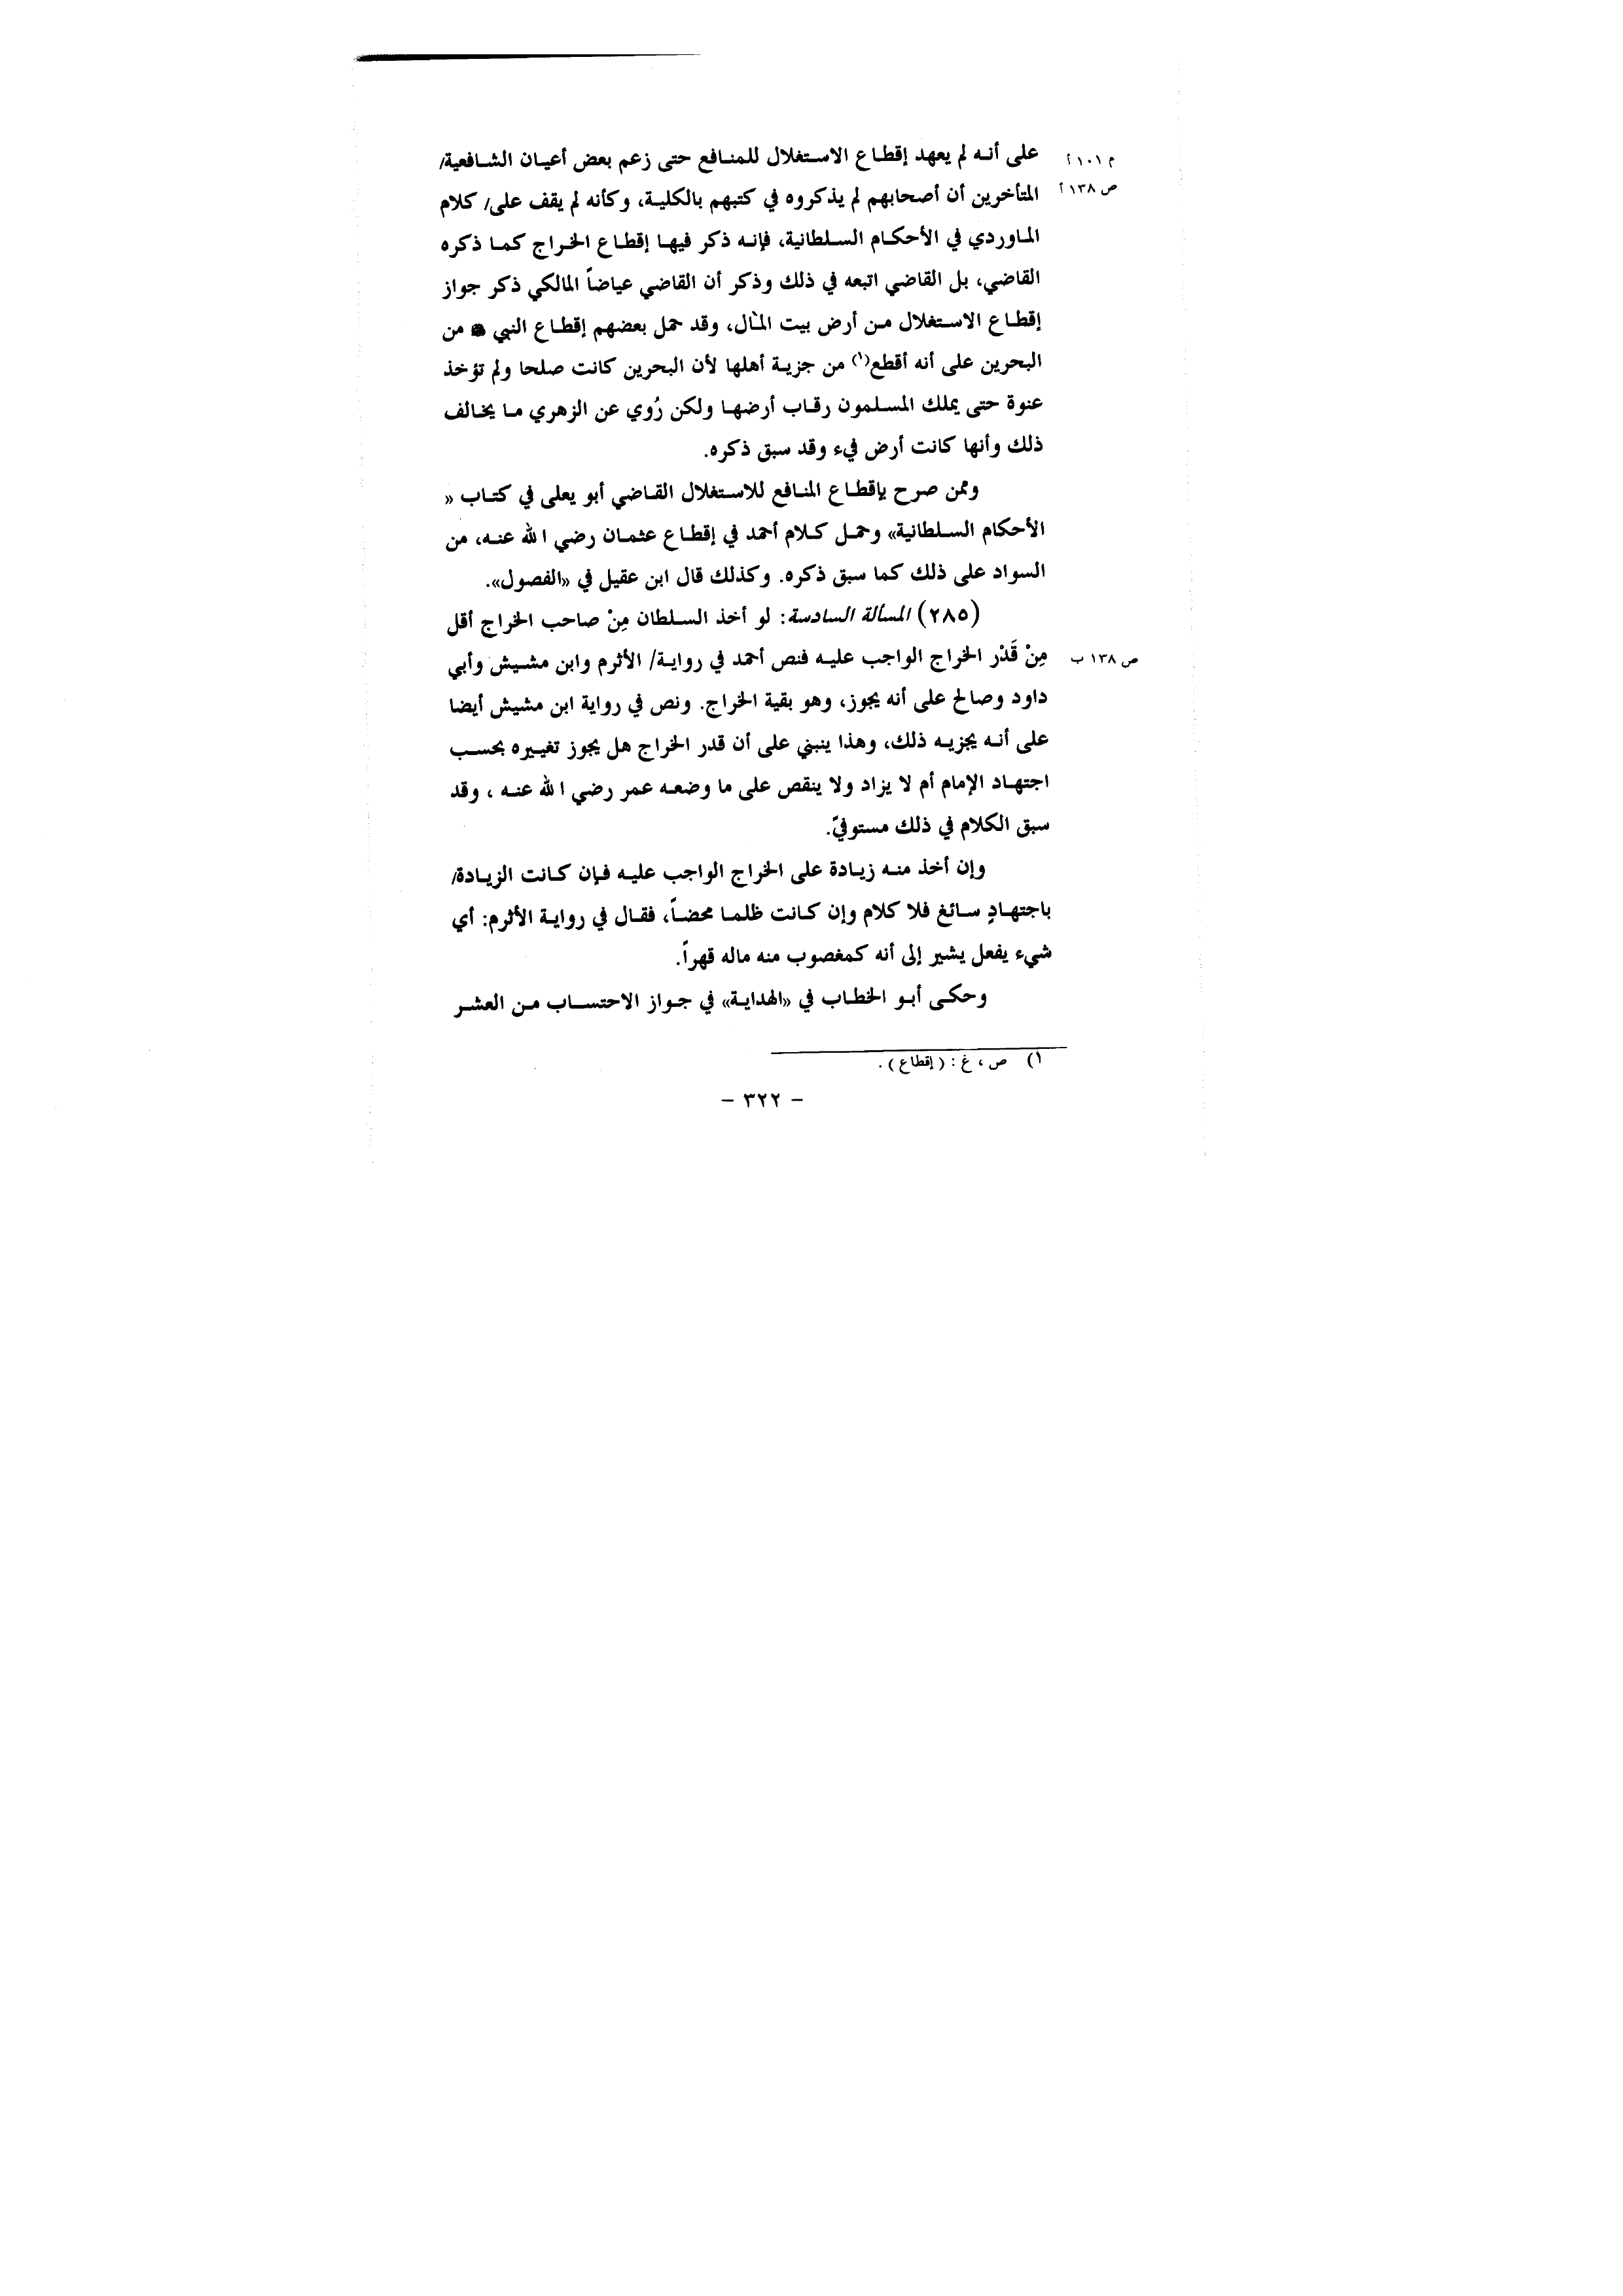 على أنه لم يعهد إقطاع الاستغلال للمنافع حتى زعم بعض أعيان الشافعية/
م ١٠١ أ
المتأخرين أن أصحابهم لم يذكروه في كتبهم بالكلية، وكأنه لم يقف على/ كلام
ص ١٣٨ أ
الماوردي في الأحكام السلطانية، فإنه ذكر فيها إقطاع الخراج كما ذكره
القاضي، بل القاضي اتبعه في ذلك وذكر أن القاضي عياضاً المالكي ذكر جواز
إقطاع الاستغلال من أرض بيت المال، وقد حمل بعضهم إقطاع النبي ﷺ من
البحرين على أنه أقطع(١) من جزية أهلها لأن البحرين كانت صلحا ولم تؤخذ
عنوة حتى يملك المسلمون رقاب أرضها ولكن رُوي عن الزهري ما يخالف
ذلك وأنها كانت أرض فيء وقد سبق ذكره.
وممن صرح بإقطاع المنافع للاستغلال القاضي أبو يعلى في كتاب «
الأحكام السلطانية» وحمل كلام أحمد في إقطاع عثمان رضي الله عنه، من
السواد على ذلك كما سبق ذكره. وكذلك قال ابن عقيل في «الفصول».
(٢٨٥) المسألة السادسة: لو أخذ السلطان مِنْ صاحب الخراج أقل
مِنْ قَدْر الخراج الواجب عليه فنص أحمد في رواية/ الأثرم وابن مشيش وأبي
ص ١٣٨ ب
داود وصالح على أنه يجوز، وهو بقية الخراج. ونص في رواية ابن مشيش أيضا
على أنه يجزيه ذلك، وهذا ينبني على أن قدر الخراج هل يجوز تغييره بحسب
اجتهاد الإمام أم لا يزاد ولا ينقص على ما وضعه عمر رضي الله عنه ، وقد
سبق الكلام في ذلك مستوفيً.
وإن أخذ منه زيادة على الخراج الواجب عليه فإن كانت الزيادة/
باجتهادٍ سائغ فلا كلام وإن كانت ظلما محضاً، فقال في رواية الأثرم: أي
شيء يفعل يشير إلى أنه كمغصوب منه ماله قهراً.
وحكى أبو الخطاب في «الهداية» في جواز الاحتساب من العشر
١) ص ، غ : ( إقطاع ) .
– ٣٢٢ –